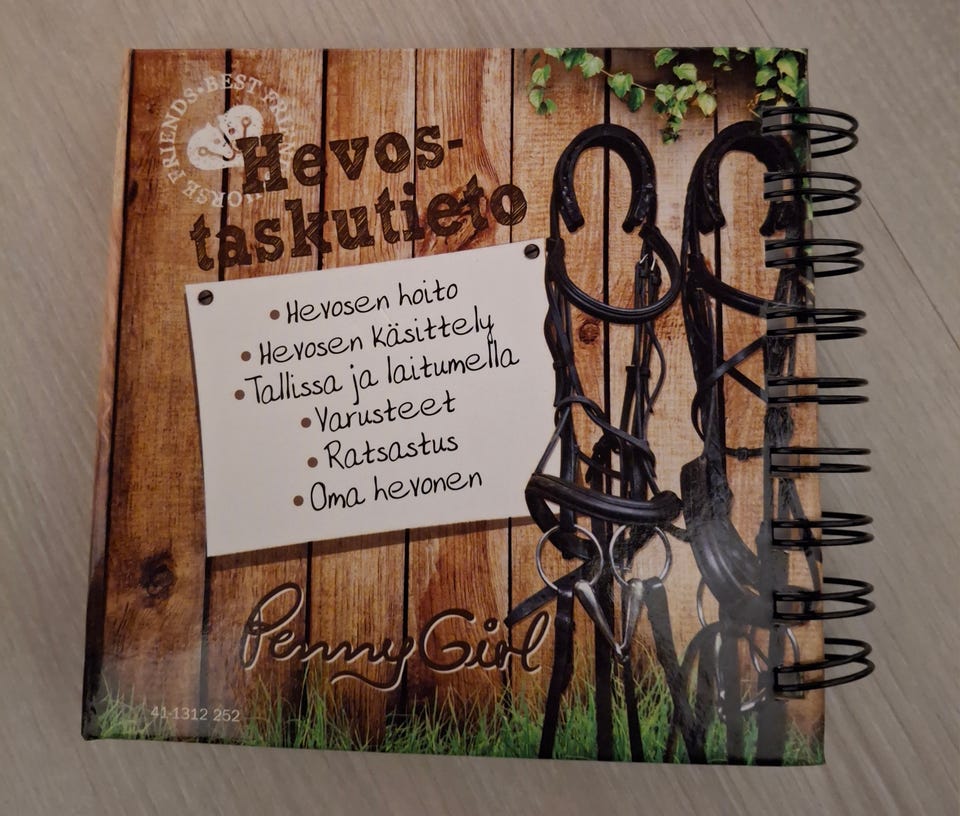 HORSE FRIENDS • BEST FRIENDS
Hevos-
taskutieto
• Hevosen hoito
• Hevosen käsittely
• Tallissa ja laitumella
• Varusteet
• Ratsastus
• Oma hevonen
Penny Girl
41-1312 252